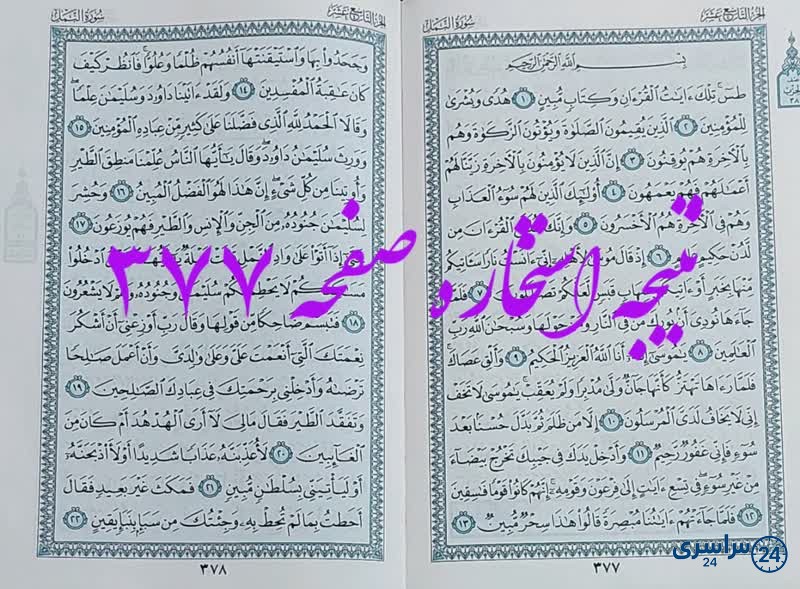 الجُزْءُ التَّاسِعَ عَشَرَ سُورَةُ النَّمْلِ
بِسْمِ ٱللَّهِ ٱلرَّحْمَٰنِ ٱلرَّحِيمِ
طسٓ ۚ تِلْكَ ءَايَٰتُ ٱلْقُرْءَانِ وَكِتَابٍ مُّبِينٍ ١ هُدًى وَبُشْرَىٰ
لِلْمُؤْمِنِينَ ٢ ٱلَّذِينَ يُقِيمُونَ ٱلصَّلَوٰةَ وَيُؤْتُونَ ٱلزَّكَوٰةَ وَهُم
بِٱلْءَاخِرَةِ هُمْ يُوقِنُونَ ٣ إِنَّ ٱلَّذِينَ لَا يُؤْمِنُونَ بِٱلْءَاخِرَةِ زَيَّنَّا لَهُمْ
أَعْمَٰلَهُمْ فَهُمْ يَعْمَهُونَ ٤ أُو۟لَٰٓئِكَ ٱلَّذِينَ لَهُمْ سُوٓءُ ٱلْعَذَابِ
وَهُمْ فِى ٱلْءَاخِرَةِ هُمُ ٱلْأَخْسَرُونَ ٥ وَإِنَّكَ ٱلْقُرْءَانَ مِن
لَّدُنْ حَكِيمٍ ٦ إِذْ قَالَ مُوسَىٰ لِأَهْلِهِۦٓ إِنِّىٓ ءَانَسْتُ نَارًا سَـَٔاتِيكُم
مِّنْهَا بِخَبَرٍ أَوْ ءَاتِيكُم بِشِهَابٍ قَبَسٍ لَّعَلَّكُمْ تَصْطَلُونَ ٧ فَلَمَّا
جَآءَهَا نُودِىَ أَنۢ بُورِكَ مَن فِى ٱلنَّارِ وَمَنْ حَوْلَهَا وَسُبْحَٰنَ ٱللَّهِ رَبِّ
ٱلْعَٰلَمِينَ ٨ يَٰمُوسَىٰٓ إِنَّهُۥٓ أَنَا ٱللَّهُ ٱلْعَزِيزُ ٱلْحَكِيمُ ٩ وَأَلْقِ عَصَاكَ ۚ
فَلَمَّا رَءَاهَا تَهْتَزُّ كَأَنَّهَا جَآنٌّ وَلَّىٰ مُدْبِرًا وَلَمْ يُعَقِّبْ ۚ يَٰمُوسَىٰ لَا تَخَفْ
إِنِّى لَا يَخَافُ لَدَىَّ ٱلْمُرْسَلُونَ ١٠ إِلَّا مَن ظَلَمَ ثُمَّ بَدَّلَ حُسْنًۢا بَعْدَ
سُوٓءٍ فَإِنِّى غَفُورٌ رَّحِيمٌ ١١ وَأَدْخِلْ يَدَكَ فِى جَيْبِكَ تَخْرُجْ بَيْضَآءَ
مِنْ غَيْرِ سُوٓءٍ ۖ فِى تِسْعِ ءَايَٰتٍ إِلَىٰ فِرْعَوْنَ وَقَوْمِهِۦٓ ۚ إِنَّهُمْ كَانُوا۟ قَوْمًا فَٰسِقِينَ
١٢ فَلَمَّا جَآءَتْهُمْ ءَايَٰتُنَا مُبْصِرَةً قَالُوا۟ هَٰذَا سِحْرٌ مُّبِينٌ ١٣
٣٧٧
الجُزْءُ التَّاسِعَ عَشَرَ سُورَةُ النَّمْلِ
وَجَحَدُوا۟ بِهَا وَٱسْتَيْقَنَتْهَآ أَنفُسُهُمْ ظُلْمًا وَعُلُوًّا ۚ فَٱنظُرْ كَيْفَ
كَانَ عَٰقِبَةُ ٱلْمُفْسِدِينَ ١٤ وَلَقَدْ ءَاتَيْنَا دَاوُۥدَ وَسُلَيْمَٰنَ عِلْمًا ۖ
وَقَالَا ٱلْحَمْدُ لِلَّهِ ٱلَّذِى فَضَّلَنَا عَلَىٰ كَثِيرٍ مِّنْ عِبَادِهِ ٱلْمُؤْمِنِينَ ١٥
وَوَرِثَ سُلَيْمَٰنُ دَاوُۥدَ ۖ وَقَالَ يَٰٓأَيُّهَا ٱلنَّاسُ عُلِّمْنَا مَنطِقَ ٱلطَّيْرِ
وَأُوتِينَا مِن كُلِّ شَىْءٍ ۖ إِنَّ هَٰذَا لَهُوَ ٱلْفَضْلُ ٱلْمُبِينُ ١٦ وَحُشِرَ
لِسُلَيْمَٰنَ جُنُودُهُۥ مِنَ ٱلْجِنِّ وَٱلْإِنسِ وَٱلطَّيْرِ فَهُمْ يُوزَعُونَ ١٧
حَتَّىٰٓ إِذَآ أَتَوْا۟ عَلَىٰ وَادِ ٱلنَّمْلِ قَالَتْ نَمْلَةٌ يَٰٓأَيُّهَا ٱدْخُلُوا۟
مَسَٰكِنَكُمْ لَا يَحْطِمَنَّكُمْ سُلَيْمَٰنُ وَجُنُودُهُۥ وَهُمْ لَا يَشْعُرُونَ
١٨ فَتَبَسَّمَ ضَاحِكًا مِّن قَوْلِهَا وَقَالَ رَبِّ أَوْزِعْنِىٓ أَنْ أَشْكُرَ
نِعْمَتَكَ ٱلَّتِىٓ أَنْعَمْتَ عَلَىَّ وَعَلَىٰ وَٰلِدَىَّ وَأَنْ أَعْمَلَ صَٰلِحًا
تَرْضَىٰهُ وَأَدْخِلْنِى بِرَحْمَتِكَ فِى عِبَادِكَ ٱلصَّٰلِحِينَ ١٩
وَتَفَقَّدَ ٱلطَّيْرَ فَقَالَ مَالِىَ لَآ أَرَى ٱلْهُدْهُدَ أَمْ كَانَ مِنَ
ٱلْغَآئِبِينَ ٢٠ لَأُعَذِّبَنَّهُۥ عَذَابًا شَدِيدًا أَوْ لَأَا۟ذْبَحَنَّهُۥٓ
أَوْ لَيَأْتِيَنِّى بِسُلْطَٰنٍ مُّبِينٍ ٢١ فَمَكَثَ غَيْرَ بَعِيدٍ فَقَالَ
أَحَطتُ بِمَا لَمْ تُحِطْ بِهِۦ وَجِئْتُكَ مِن سَبَإٍۭ بِنَبَإٍ يَقِينٍ ٢٢
٣٧٨
نتیجه استخاره صفحه ۳۷۷
سراسری 24
24